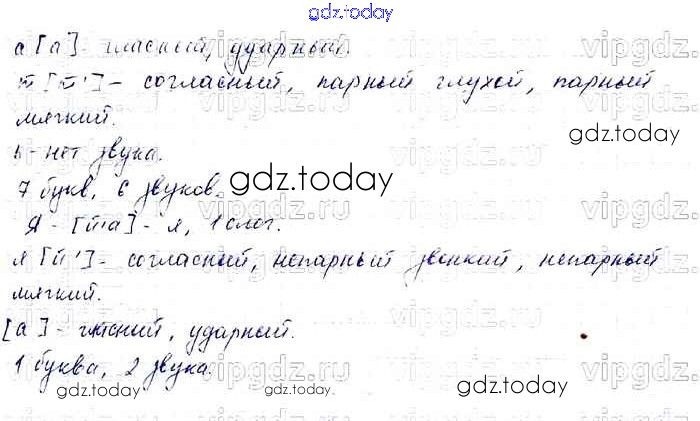 gdz.today
а [а] - гласный, ударный.
т [т'] - согласный, парный глухой, парный
мягкий.
gdz.today
ь - нет звука.
7 букв, 6 звуков.
gdz.today
Я - [й'а] - я, 1 слог.
я [й'] - согласный, непарный звонкий, непарный
мягкий.
[а] - гласный, ударный.
1 буква, 2 звука.
gdz.today
gdz.today
gdz.today
vipgdz.ru